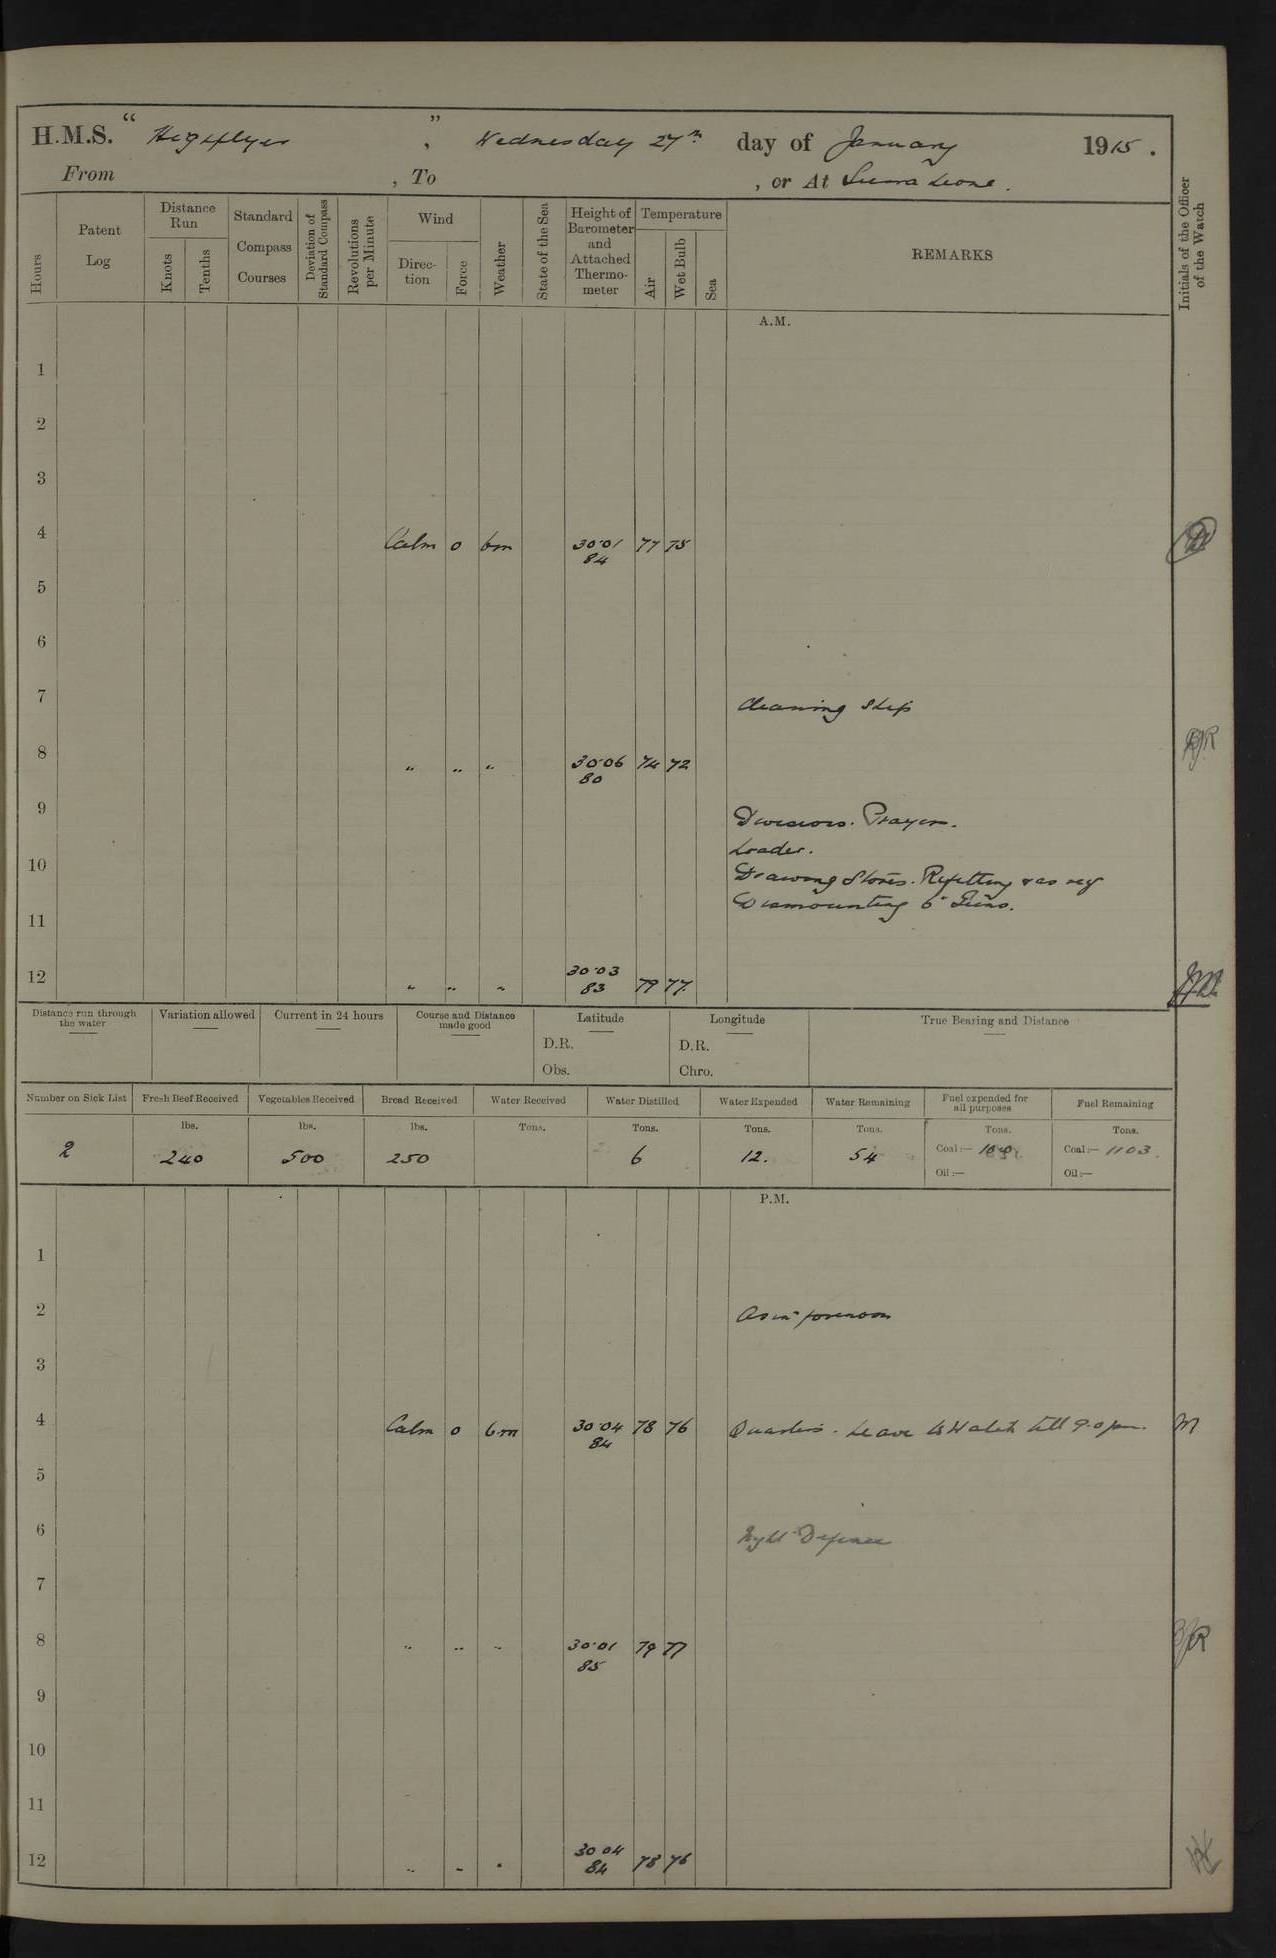 H.M.S. “ Highflyer ” , Wednesday 27th day of January 1915 .
From , To , or At Sierra Leone .
Hours
Patent Log
Distance Run
Knots
Tenths
Standard Compass Courses
Deviation of Standard Compass
Revolutions per Minute
Wind
Direction
Force
Weather
State of the Sea
Height of Barometer and Attached Thermometer
Temperature
Air
Wet Bulb
Sea
REMARKS
Initials of the Officer of the Watch
A.M.
1
2
3
4 Calm 0 bm 30·01 77 75
84
5
6
7 Cleaning Ship
8 " " " 30·06 74 72 BJR
80
9 Divisions. Prayers.
Loader.
10 Drawing Stores. Refitting & as req
11 Dismounting 6" Guns.
12 " " " 30·03 79 77.
83
Distance run through the water
Variation allowed
Current in 24 hours
Course and Distance made good
Latitude
D.R.
Obs.
Longitude
D.R.
Chro.
True Bearing and Distance
Number on Sick List Fresh Beef Received Vegetables Received Bread Received Water Received Water Distilled Water Expended Water Remaining Fuel expended for all purposes Fuel Remaining
lbs. lbs. lbs. Tons. Tons. Tons. Tons. Tons. Tons.
2 240 500 250 6 12. 54 Coal:— Coal:— 1103.
Oil:— Oil:—
P.M.
1
2 As in forenoon
3
4 Calm 0 bm 30·04 78 76 Quarters. Leave to Watch till 9.0 pm. M
84
5
6 Night Defence
7
8 " " " 30·01 79 77 BJR
85
9
10
11
12 " " " 30 04 78 76
84